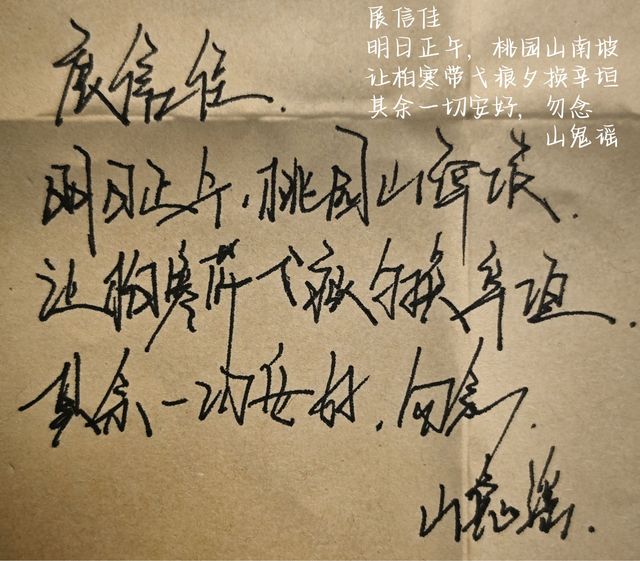 展信佳
明日正午，桃园山南坡
让柏寒带弋痕夕换辛垣
其余一切安好，勿念
山鬼谣
展信佳.
明日正午,桃园山南坡.
让柏寒带弋痕夕换辛垣.
其余一切安好,勿念.
山鬼谣.